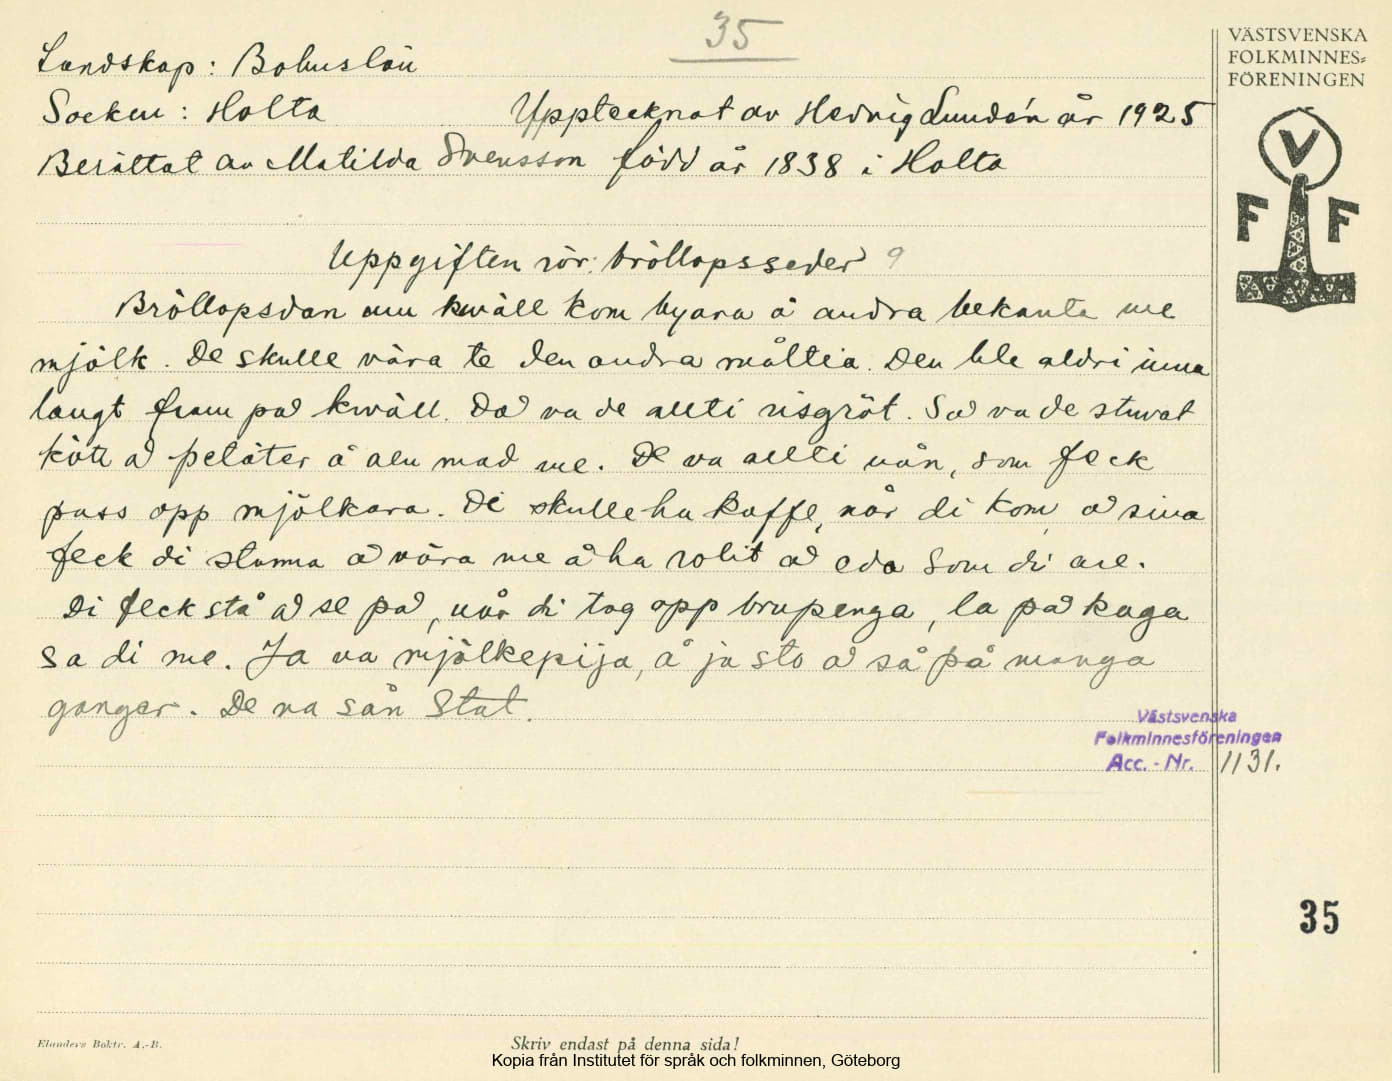 35
VÄSTSVENSKA
FOLKMINNES-
FÖRENINGEN
V
F F
Landskap: Bohuslän
Socken: Holta Upptecknat av Hedvig Lundén år 1925
Berättat av Matilda Svensson född år 1838 i Holta
Uppgiften rör: bröllopsseder 9
Bröllopsdan um kwäll kom byara å andra bekanta me
mjölk. De skulle våra te den andra måltia. Den ble aldri inna
langt fram på kwäll. Då va de allti risgröt. Så va de stuvat
kött å petäter å alu mad me. De va allti nån, som feck
pass opp mjölkara. Di skulle ha kaffe, når di kom, å sina
feck di stanna å våra me å ha rolit å eda som di are.
Di feck stå å se på, når di tog opp brupenga, la på kaga
sa di me. Ja va mjölkepija, å ja sto å så på manga
ganger. De va sån stat.
Västsvenska
Folkminnesföreningen
Acc.-Nr. 1131.
35
Elanders Boktr. A.-B.
Skriv endast på denna sida!
Kopia från Institutet för språk och folkminnen, Göteborg